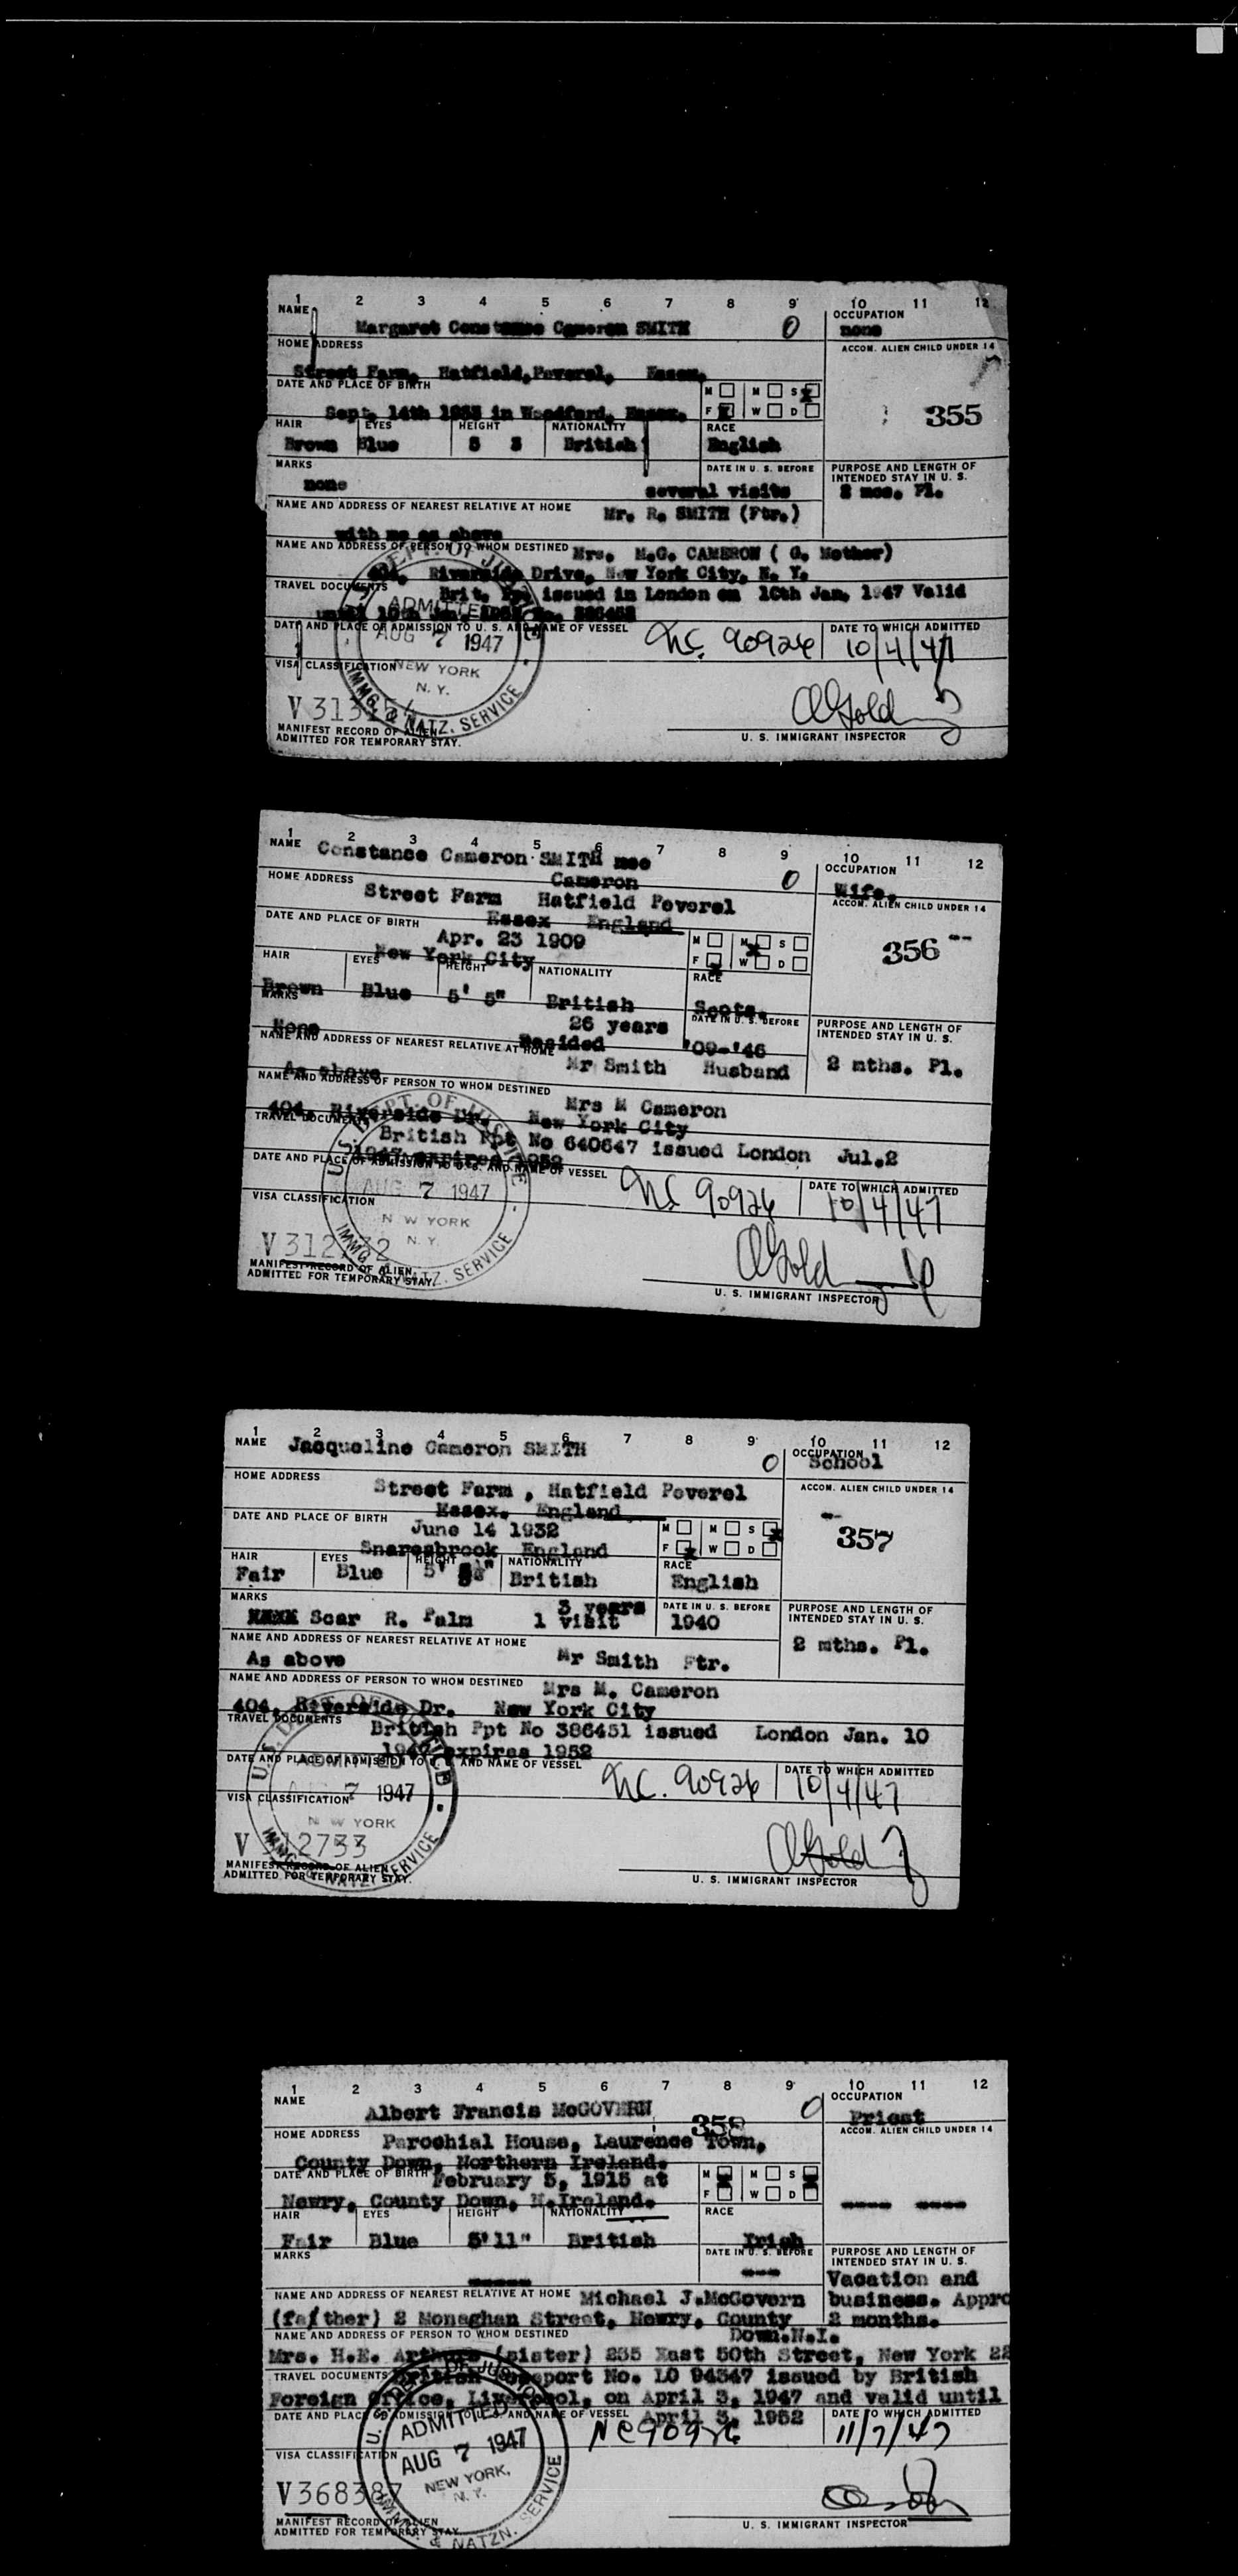 1 2 3 4 5 6 7 8 9 10 11 12
NAME OCCUPATION
Margaret Constance Cameron SMITH 0 none
HOME ADDRESS ACCOM. ALIEN CHILD UNDER 14
Street Farm, Hatfield, Peverel, Essex.
DATE AND PLACE OF BIRTH M M S
Sept. 14th in Woodford, Essex. F W D 355
HAIR EYES HEIGHT NATIONALITY RACE
Brown Blue 5 British English
MARKS DATE IN U. S. BEFORE PURPOSE AND LENGTH OF INTENDED STAY IN U. S.
none several visits 2 mos. Pl.
NAME AND ADDRESS OF NEAREST RELATIVE AT HOME Mr. R. SMITH (Ftr.)
with me as above
NAME AND ADDRESS OF PERSON TO WHOM DESTINED Mrs. M.G. CAMERON ( G. Mother)
404, Riverside Drive, New York City, N. Y.
TRAVEL DOCUMENTS Brit. Ppt issued in London on 10th Jan. 1947 Valid
until 10th Jan.
DATE AND PLACE OF ADMISSION TO U. S. AND NAME OF VESSEL NC. 90926 DATE TO WHICH ADMITTED 10/4/47
U.S. DEPT. OF JUSTICE
ADMITTED
AUG 7 1947
NEW YORK
N. Y.
IMMG. & NATZ. SERVICE
VISA CLASSIFICATION
MANIFEST RECORD OF ALIEN
ADMITTED FOR TEMPORARY STAY.
U. S. IMMIGRANT INSPECTOR
1 2 3 4 5 6 7 8 9 10 11 12
NAME Constance Cameron SMITH nee OCCUPATION
Cameron 0 Wife.
HOME ADDRESS ACCOM. ALIEN CHILD UNDER 14
Street Farm Hatfield Peverel
Essex England
DATE AND PLACE OF BIRTH M M S
Apr. 23 1909 F W D 356 --
New York City
HAIR EYES HEIGHT NATIONALITY RACE
Brown Blue 5' 5" British Scots.
MARKS 26 years DATE IN U. S. BEFORE PURPOSE AND LENGTH OF INTENDED STAY IN U. S.
None Resided '09-'46 2 mths. Pl.
NAME AND ADDRESS OF NEAREST RELATIVE AT HOME Mr Smith Husband
As above
NAME AND ADDRESS OF PERSON TO WHOM DESTINED Mrs M Cameron
404, Riverside Dr. New York City
TRAVEL DOCUMENTS British Ppt No 640647 issued London Jul.2
1947 expires 1952
DATE AND PLACE OF ADMISSION TO U. S. AND NAME OF VESSEL NC 90926 DATE TO WHICH ADMITTED 10/4/47
U.S. DEPT. OF JUSTICE
AUG 7 1947
N W YORK
N. Y.
IMMG. & NATZ. SERVICE
VISA CLASSIFICATION
MANIFEST RECORD OF ALIEN
ADMITTED FOR TEMPORARY STAY.
U. S. IMMIGRANT INSPECTOR
1 2 3 4 5 6 7 8 9 10 11 12
NAME Jacqueline Cameron SMITH 0 OCCUPATION School
HOME ADDRESS ACCOM. ALIEN CHILD UNDER 14
Street Farm , Hatfield Peverel
Essex, England
DATE AND PLACE OF BIRTH M M S
June 14 1932 F W D -- 357
Snaresbrook England
HAIR EYES HEIGHT NATIONALITY RACE
Fair Blue 5' British English
MARKS 3 years DATE IN U. S. BEFORE PURPOSE AND LENGTH OF INTENDED STAY IN U. S.
Scar R. Palm 1 visit 1940 2 mths. Pl.
NAME AND ADDRESS OF NEAREST RELATIVE AT HOME
As above Mr Smith Ftr.
NAME AND ADDRESS OF PERSON TO WHOM DESTINED Mrs M. Cameron
404, Riverside Dr. New York City
TRAVEL DOCUMENTS British Ppt No 386451 issued London Jan. 10
1947 expires 1952
DATE AND PLACE OF ADMISSION TO U. S. AND NAME OF VESSEL NC. 90926 DATE TO WHICH ADMITTED 10/4/47
ADMITTED
7 1947
N W YORK
VISA CLASSIFICATION
MANIFEST RECORD OF ALIEN
ADMITTED FOR TEMPORARY STAY.
U. S. IMMIGRANT INSPECTOR
1 2 3 4 5 6 7 8 9 10 11 12
NAME OCCUPATION
Albert Francis McGOVERN 358 0 Priest
HOME ADDRESS ACCOM. ALIEN CHILD UNDER 14
Parochial House, Laurence Town,
County Down, Northern Ireland.
DATE AND PLACE OF BIRTH February 5, 1915 at M M S
Newry, County Down, N.Ireland. F W D ---- ----
HAIR EYES HEIGHT NATIONALITY RACE
Fair Blue 5'11" British Irish
MARKS DATE IN U. S. BEFORE PURPOSE AND LENGTH OF INTENDED STAY IN U. S.
----- --- Vacation and
NAME AND ADDRESS OF NEAREST RELATIVE AT HOME Michael J.McGovern business. Appro
(father) 2 Monaghan Street, Newry, County 2 months.
NAME AND ADDRESS OF PERSON TO WHOM DESTINED Down.N.I.
Mrs. H.E. Arthurs (sister) 235 East 50th Street, New York 22
TRAVEL DOCUMENTS British Passport No. LO 94347 issued by British
Foreign Office, Liverpool, on April 3, 1947 and valid until
DATE AND PLACE OF ADMISSION TO U. S. AND NAME OF VESSEL April 3, 1952 DATE TO WHICH ADMITTED
NC90926 11/7/47
ADMITTED
AUG 7 1947
NEW YORK,
N. Y.
IMMG. & NATZN. SERVICE
VISA CLASSIFICATION
V368387
MANIFEST RECORD OF ALIEN
ADMITTED FOR TEMPORARY STAY
U. S. IMMIGRANT INSPECTOR